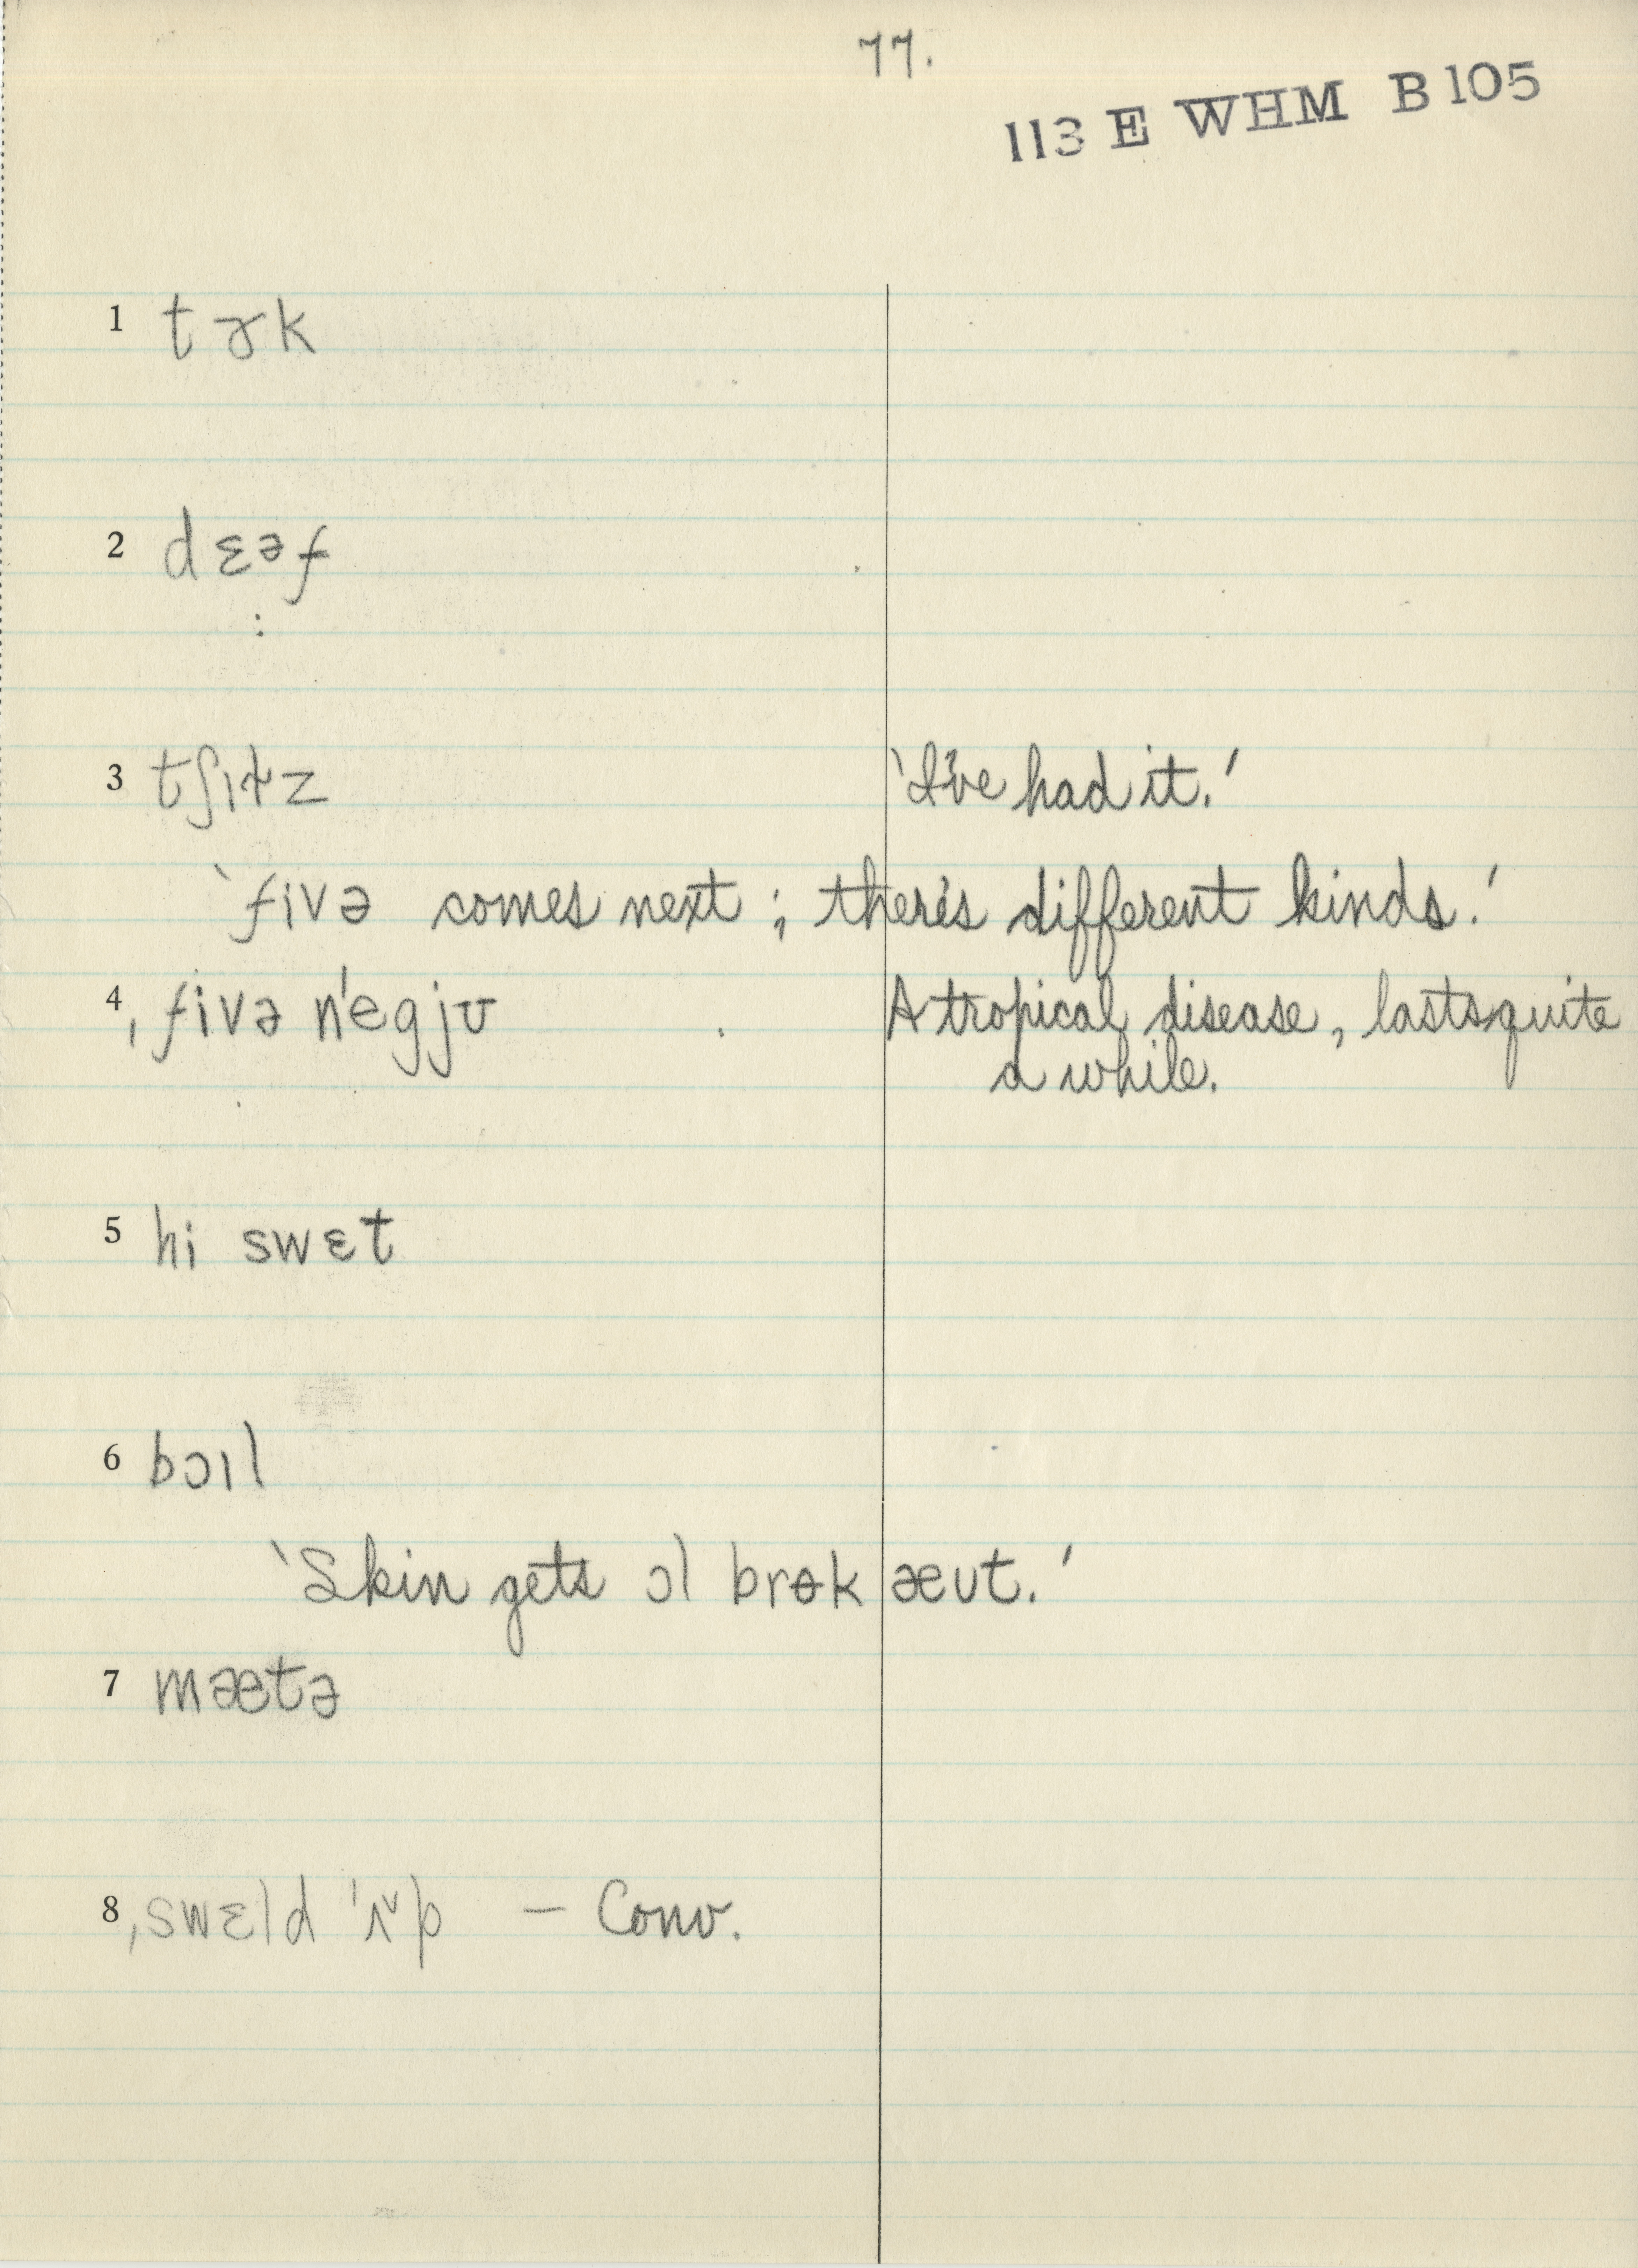 77.
113 E WHM B105
1 tɤk
2 dɛəf
:
3 tʃɪɫz 'I've had it.'
'fivə comes next; there's different kinds.'
4 ˌfivə n'egjʊ A tropical disease, lasts quite
a while.
5 hi swɛt
6 bɔɪl
'Skin gets ɔl brɵk æʊt.'
7 mætə
8 ˌswɛld 'ʌ˅p – Conv.